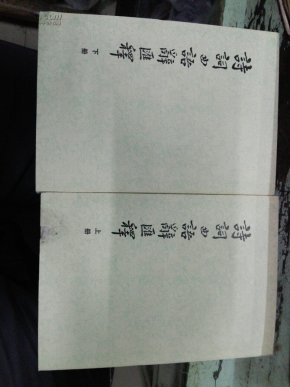 詩詞曲語辭匯釋
上册
詩詞曲語辭匯釋
下册